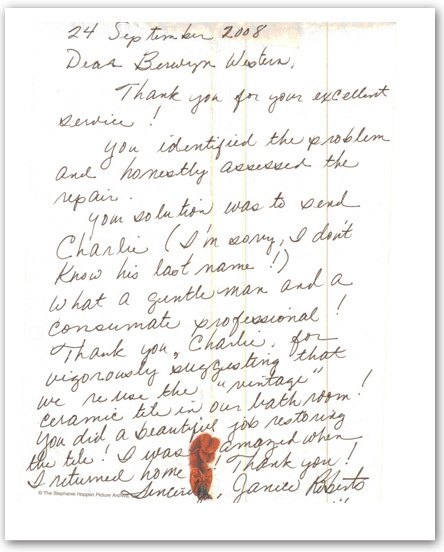 24 September 2008
Dear Berwyn Western,
Thank you for your excellent
service!
You identified the problem
and honestly assessed the
repair.
Your solution was to send
Charlie (I'm sorry, I don't
know his last name!)
What a gentleman and a
consumate professional!
Thank you, Charlie, for
vigorously suggesting that
we re use the "vintage"
ceramic tile in our bath room!
You did a beautiful job restoring
the tile! I was amazed when
I returned home! Thank you!
Janice Roberts
© The Stephanie Hoppen Picture Archive